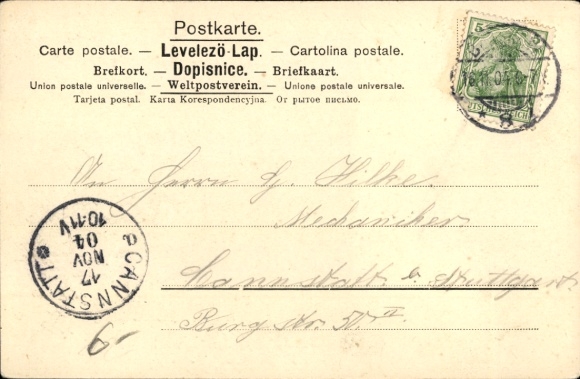 Postkarte.
Carte postale. — Levelezö-Lap. — Cartolina postale.
Brefkort. — Dopisnice. — Briefkaart.
Union postale universelle. — Weltpostverein. — Unione postale universale.
Tarjeta postal. Karta Korespondencyjna. От рытое письмо.
An Herrn G. Hilke.
Mechaniker
Cannstatt b. Stuttgart
Burg str. 50 II
CANNSTATT
17
NOV
04
10-11V